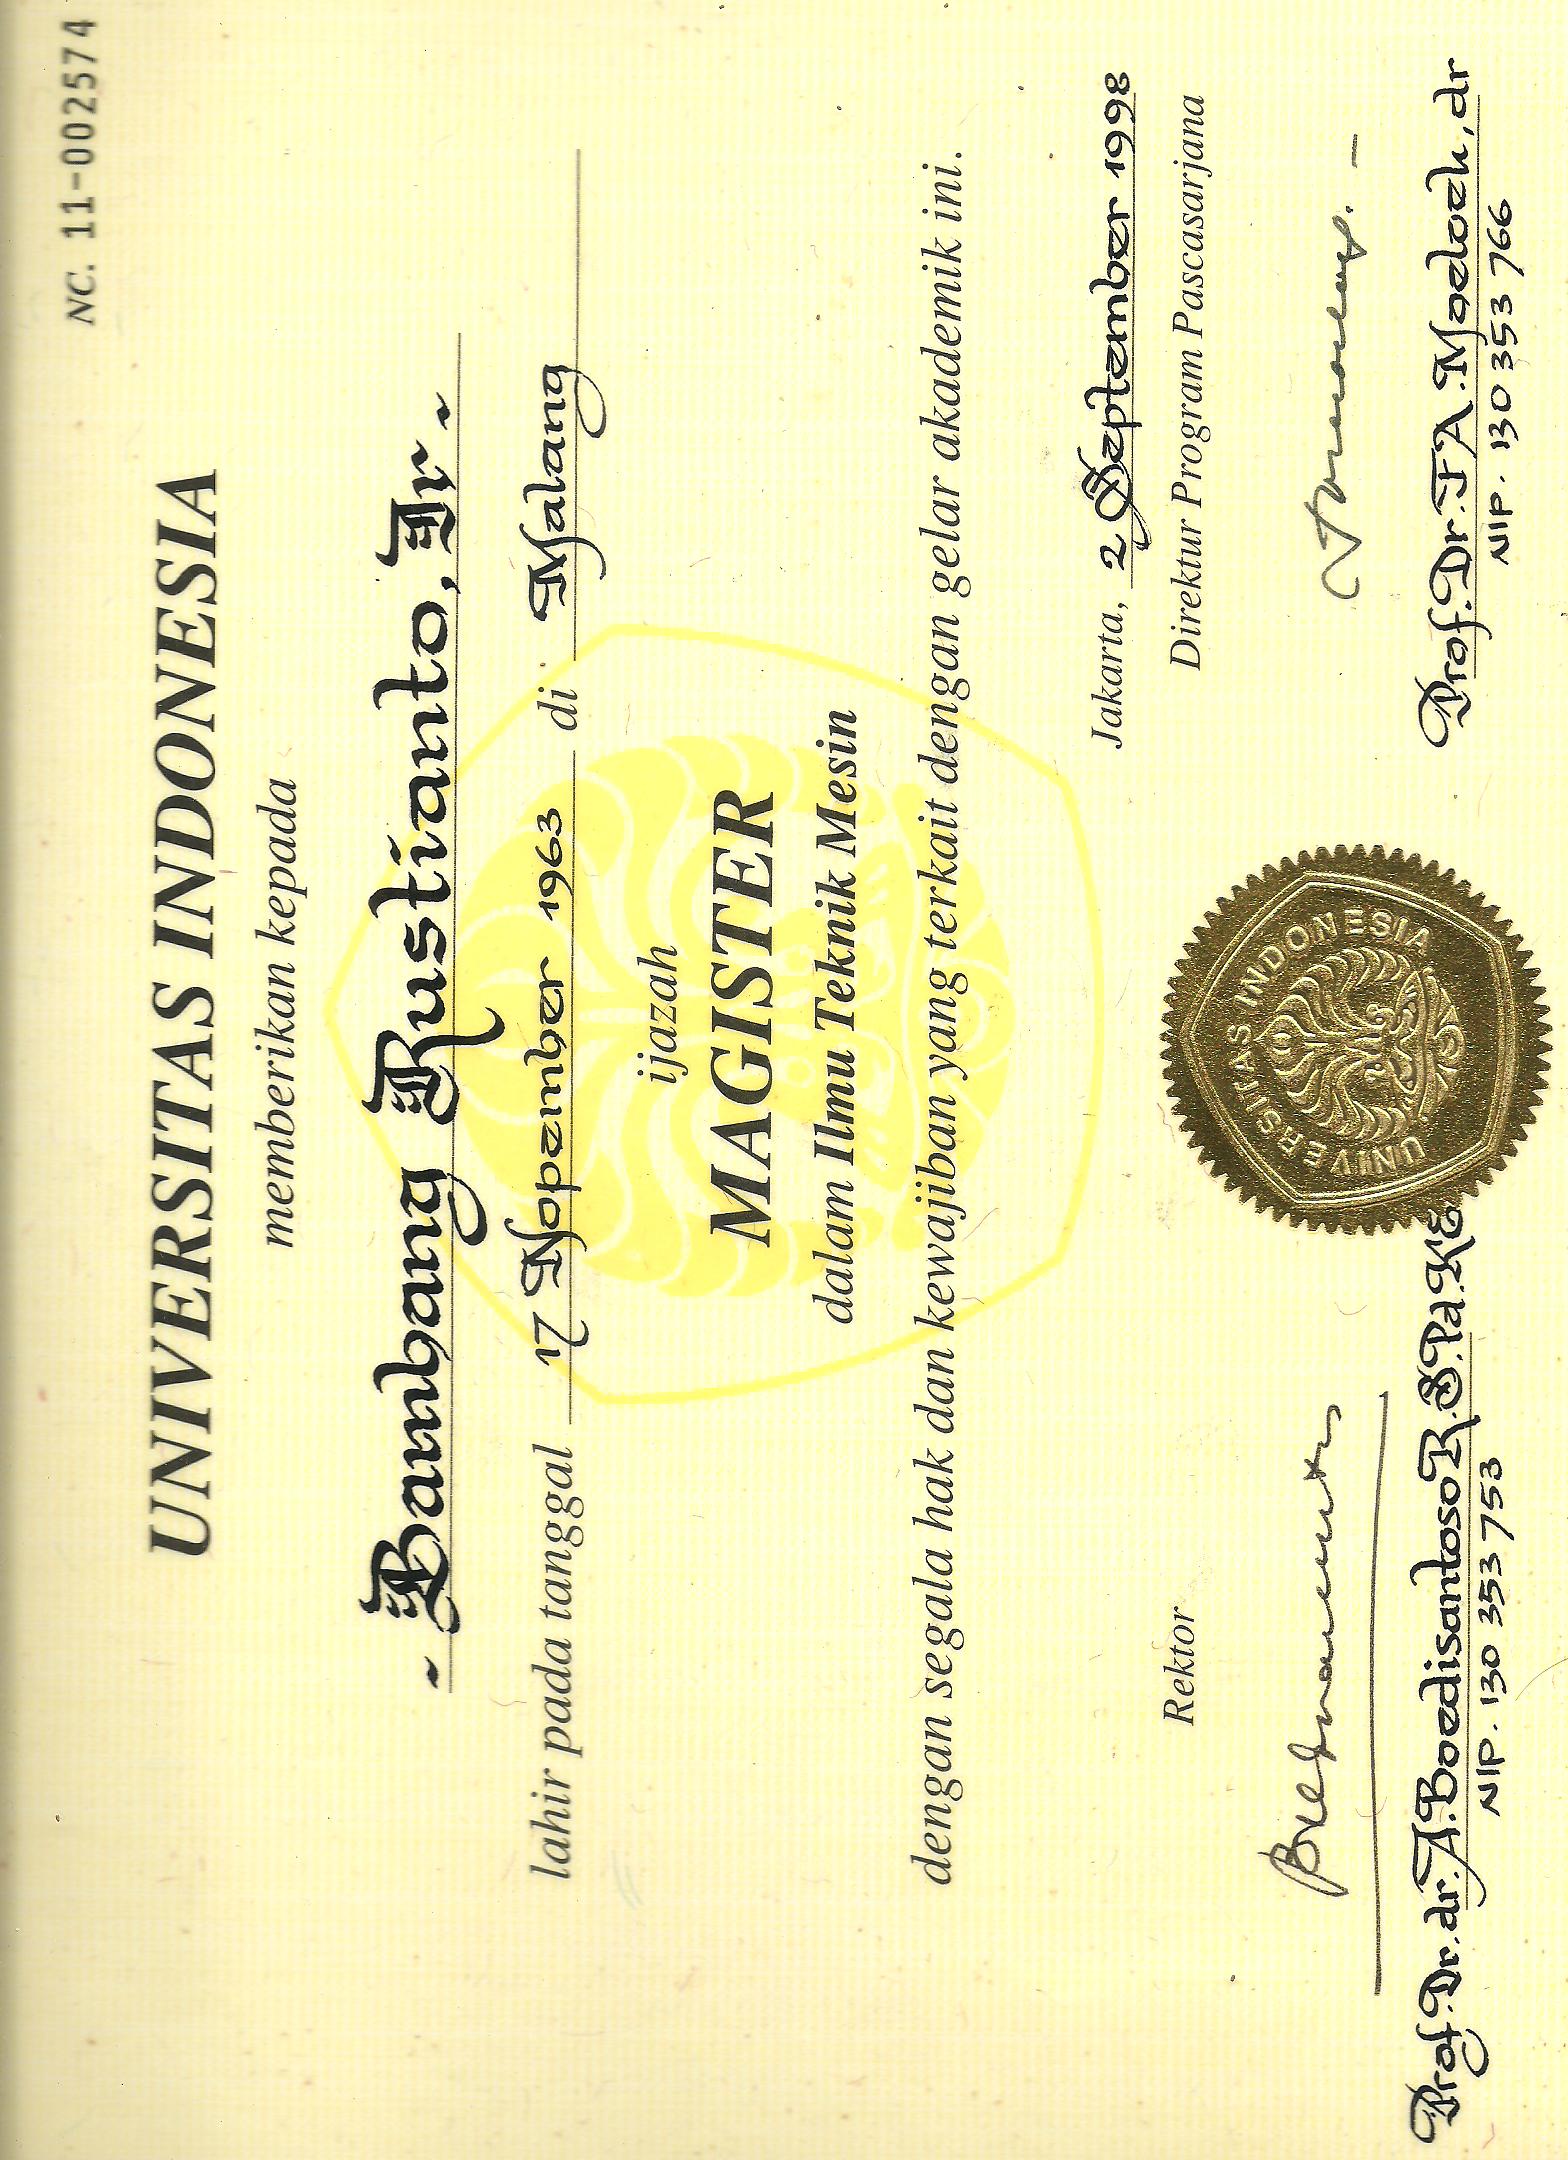 NC. 11-002574
UNIVERSITAS INDONESIA
memberikan kepada
- Bambang Rustianto, Ir -
lahir pada tanggal 17 Nopember 1963 di Malang
ijazah
MAGISTER
dalam Ilmu Teknik Mesin
dengan segala hak dan kewajiban yang terkait dengan gelar akademik ini.
Jakarta, 2 September 1998
Rektor
Direktur Program Pascasarjana
UNIVERSITAS INDONESIA
Prof. Dr. dr. A. Boedisantoso R. S.Pd. KE
NIP. 130 353 753
Prof. Dr. F A. Moeloek, dr
NIP. 130 353 766